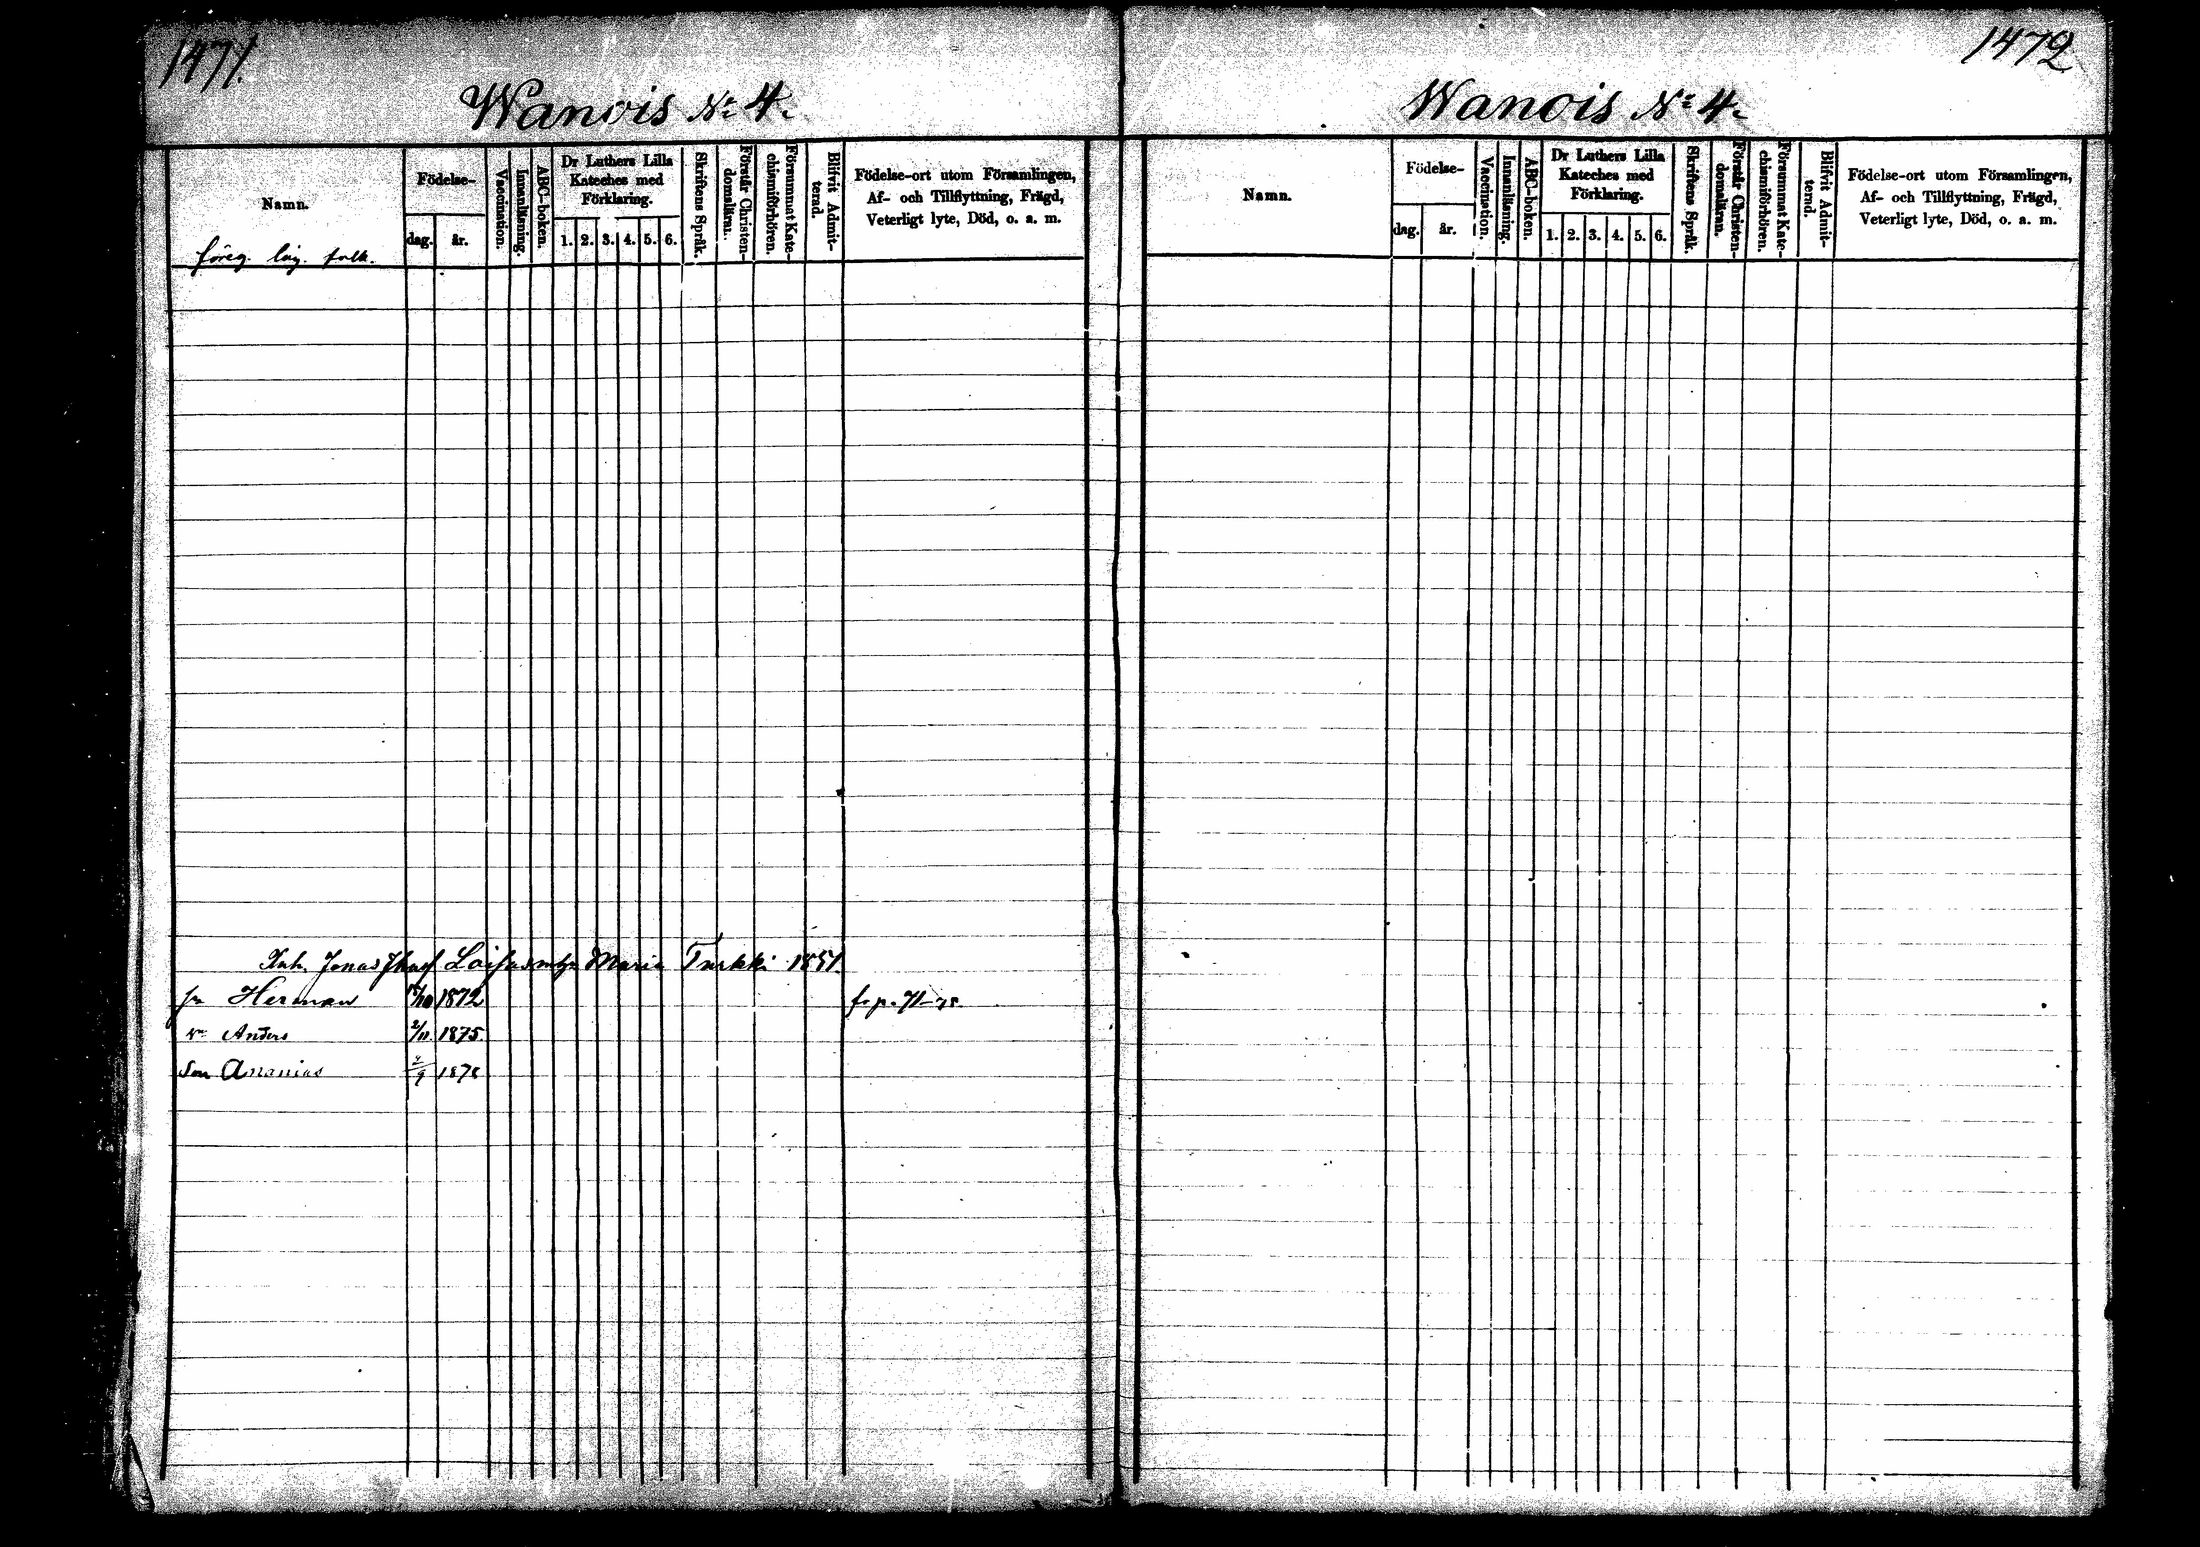 1471.
Wanois No 4.
Namn.
Födelse-
dag.
år.
Vaccination.
Innanläsning.
ABC-boken.
Dr Luthers Lilla Kateches med Förklaring.
1. 2. 3. 4. 5. 6.
Skriftens Språk.
Förstår Christendomsläran.
Försummat Katechismiförhören.
Blifvit Admitterad.
Födelse-ort utom Församlingen,
Af- och Tillflyttning, Frägd,
Veterligt lyte, Död, o. a. m.
föreg.
Inh. Jonas Maria Turkki 1851.
Herman 1872 f. p. 71-75
Anders 2/11 1875.
Son Ananias
1472
Wanois No 4.
Namn.
Födelse-
dag.
år.
Vaccination.
Innanläsning.
ABC-boken.
Dr Luthers Lilla Kateches med Förklaring.
1. 2. 3. 4. 5. 6.
Skriftens Språk.
Förstår Christendomsläran.
Försummat Katechismiförhören.
Blifvit Admitterad.
Födelse-ort utom Församlingen,
Af- och Tillflyttning, Frägd,
Veterligt lyte, Död, o. a. m.